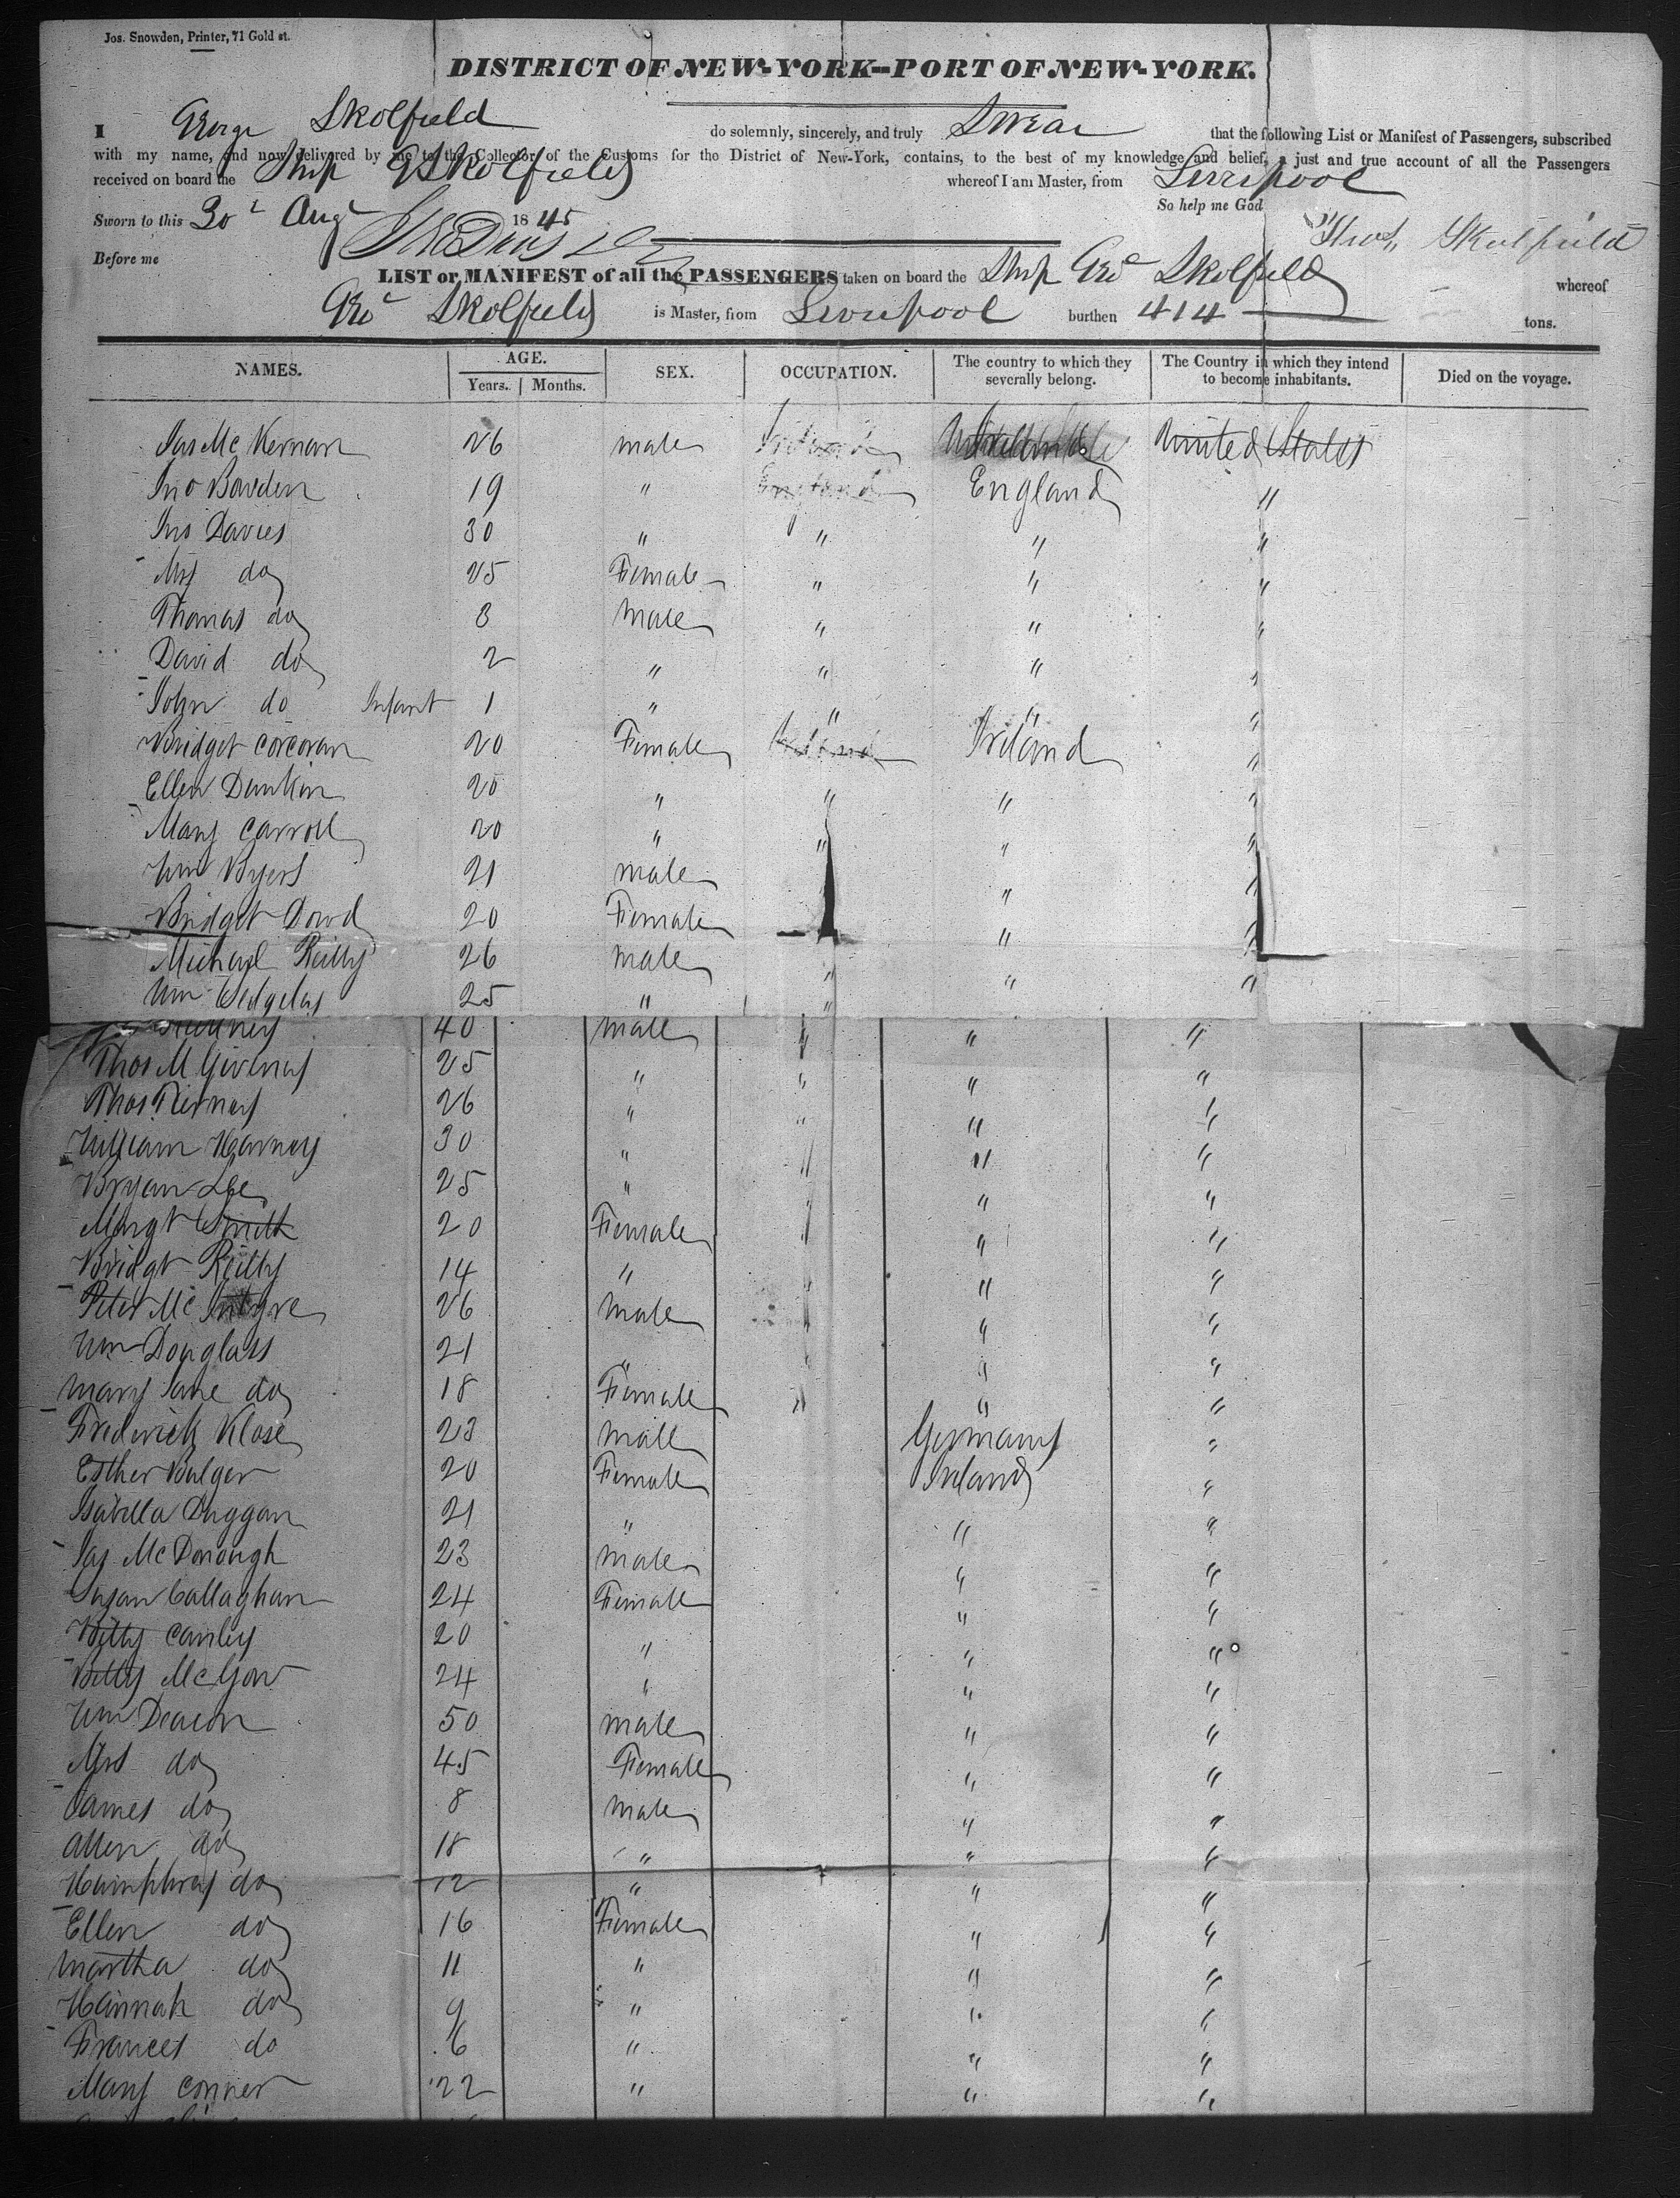 Jos. Snowden, Printer, 71 Gold st.
DISTRICT OF NEW-YORK--PORT OF NEW-YORK.
I George Skolfield do solemnly, sincerely, and truly Swear that the following List or Manifest of Passengers, subscribed
with my name, and now delivered by me to the Collector of the Customs for the District of New-York, contains, to the best of my knowledge and belief, a just and true account of all the Passengers
received on board the Ship G Skolfield whereof I am Master, from Liverpool
So help me God
Sworn to this 30 Aug 1845
Skolfield
Before me
LIST or MANIFEST of all the PASSENGERS taken on board the Ship Geo Skolfield whereof
Geo Skolfield is Master, from Liverpool burthen 414 tons.
NAMES. AGE. Years. Months. SEX. OCCUPATION. The country to which they severally belong. The Country in which they intend to become inhabitants. Died on the voyage.
Jas Mc Kernan 26 male Ireland United States
Jno Bowden 19 " England England "
Jno Davies 30 " " " "
Mrs do 25 Female " " "
Thomas do 3 Male " " "
David do 2 " " " "
John do Infant 1 " " " "
Bridget Corcoran 20 Female Ireland Ireland "
Ellen Dunkin 20 " " " "
Mary Carroll 20 " " " "
Wm Byers 21 male " "
Bridget Dowd 20 Female " "
Michael Reilly 26 male " " "
Wm 25 " "
40 male " " "
Thos M Giverny 25 " " " "
Thos Tierney 26 " " " "
William Harney 30 " " " "
Bryan Lee 25 " " " "
Margt Smith 20 Female " " "
Bridgt Reilly 14 " " "
Peter Mc Intyre 26 Male " " "
Wm Douglass 21 " " " "
Mary Jane do 18 Female " " "
Frederick Klose 23 Male Germany "
Esther Bulger 20 Female Ireland "
Isabella Duggan 21 " " "
Jas McDonough 23 male " "
Susan Callaghan 24 Female " "
Bitty Canley 20 " " "
Bitty McGow 24 " " "
Wm Deacon 50 male " "
Mrs do 45 Female " "
James do 8 male " "
Allen do 18 " " "
Humphrey do 12 " " "
Ellen do 16 Female " "
Martha do 11 " " "
Hannah do 9 " " "
Frances do 6 " " "
Mary Conner 22 " " "